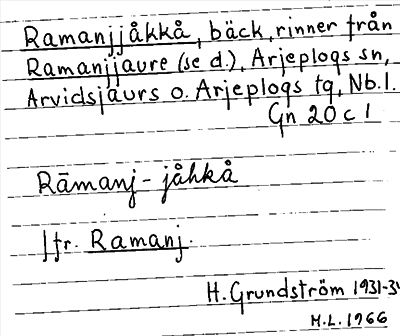 Ramanjjåkkå, bäck, rinner från
Ramanjjaure (se d.), Arjeplogs sn,
Arvidsjaurs o. Arjeplogs tg, Nb.l.
Gn 20 c 1
Rāmanj-jåhkå
Jfr. Ramanj.
H. Grundström 1931-34
H.L. 1966